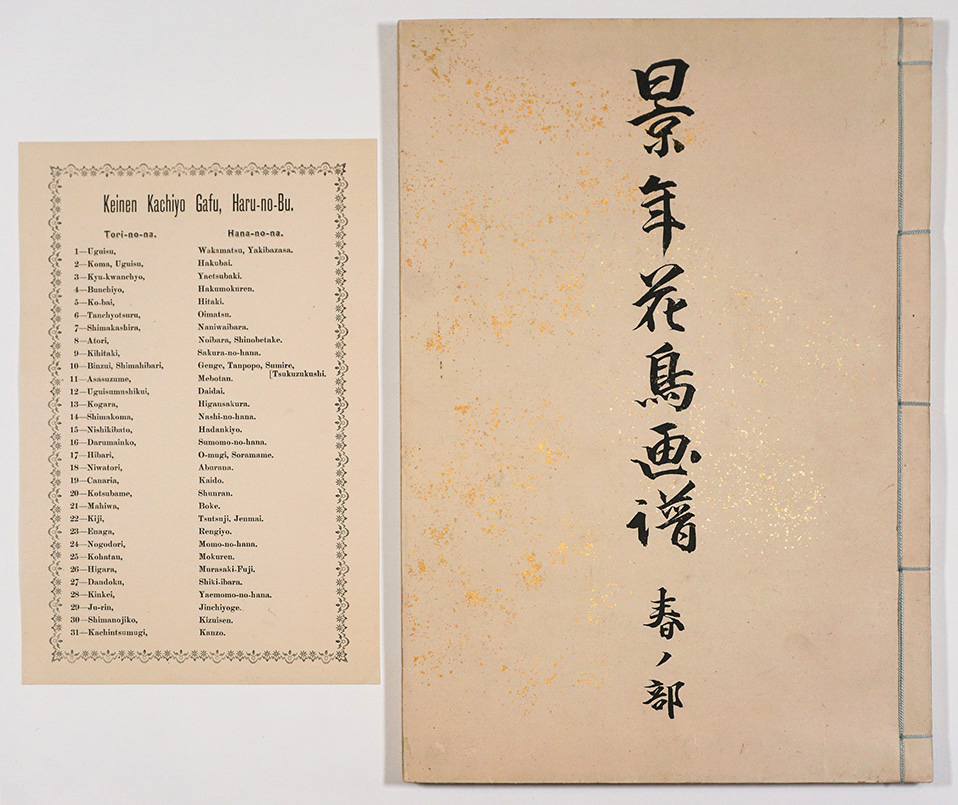 Keinen Kachiyo Gafu, Haru-no-Bu.
Tori-no-na. Hana-no-na.
1—Uguisu, Wakamatsu, Yakibazasa.
2—Koma, Uguisu, Hakubai.
3—Kyu-kwanchyo, Yaetsubaki.
4—Bunchiyo, Hakumokuren.
5—Ko-bai, Hitaki.
6—Tanchyotsuru, Oimatsu.
7—Shimakashira, Naniwaibara.
8—Atori, Noibara, Shinobetake.
9—Kihitaki, Sakura-no-hana.
10—Binzui, Shimahibari, Genge, Tanpopo, Sumire,
[Tsukuzukushi.
11—Asasuzume, Mebotan.
12—Uguisumushikui, Daidai.
13—Kogara, Higansakura.
14—Shimakoma, Nashi-no-hana.
15—Nishikibato, Hadankiyo.
16—Darumainko, Sumomo-no-hana.
17—Hibari, O-mugi, Soramame.
18—Niwatori, Aburana.
19—Canaria, Kaido.
20—Kotsubame, Shunran.
21—Mahiwa, Boke.
22—Kiji, Tsutsuji, Jenmai.
23—Enaga, Rengiyo.
24—Nogodori, Momo-no-hana.
25—Kohatau, Mokuren.
26—Higara, Murasaki-Fuji.
27—Dandoku, Shiki-ibara.
28—Kinkei, Yaemomo-no-hana.
29—Ju-rin, Jinchiyoge.
30—Shimanojiko, Kizuisen.
31—Kachintsumugi, Kanzo.
景年花鳥画譜 春ノ部